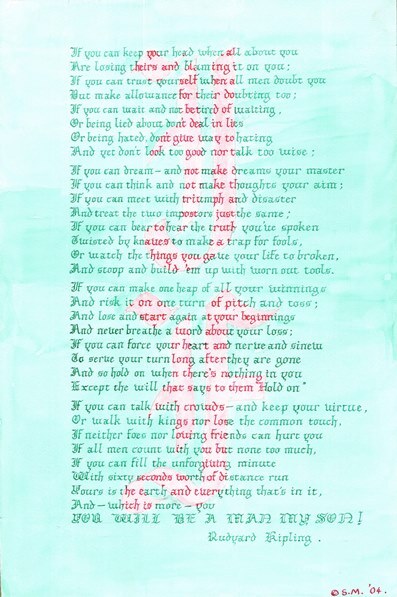 If you can keep your head when all about you
Are losing theirs and blaming it on you;
If you can trust yourself when all men doubt you
But make allowance for their doubting too;
If you can wait and not be tired of waiting,
Or being lied about don't deal in lies
Or being hated, don't give way to hating
And yet don't look too good nor talk too wise;
If you can dream - and not make dreams your master
If you can think and not make thoughts your aim;
If you can meet with triumph and disaster
And treat the two impostors just the same;
If you can bear to hear the truth you've spoken
Twisted by knaves to make a trap for fools,
Or watch the things you gave your life to broken,
And stoop and build 'em up with worn out tools.
If you can make one heap of all your winnings
And risk it on one turn of pitch and toss;
And lose and start again at your beginnings
And never breathe a word about your loss;
If you can force your heart and nerve and sinew
To serve your turn long after they are gone
And so hold on when there's nothing in you
Except the will that says to them "Hold on"
If you can talk with crowds - and keep your virtue,
Or walk with kings nor lose the common touch,
If neither foes nor loving friends can hurt you
If all men count with you but none too much,
If you can fill the unforgiving minute
With sixty seconds worth of distance run
Yours is the earth and everything that's in it,
And - which is more - you
YOU WILL BE A MAN MY SON!
Rudyard Kipling.
© S.M. '04.